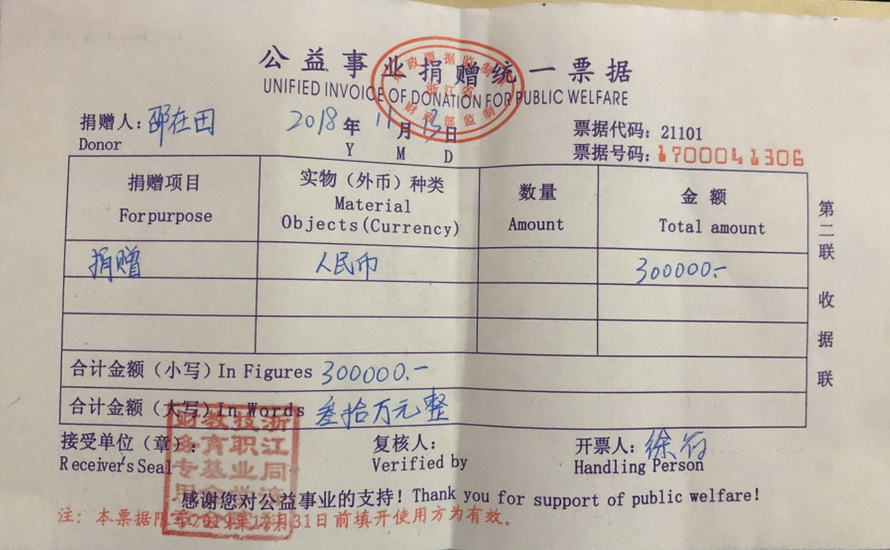 公益事业捐赠统一票据
UNIFIED INVOICE OF DONATION FOR PUBLIC WELFARE
财政票据监制
浙江省
财政部监制
捐赠人: 邵在田 2018 年 11 月 13 日
Donor Y M D
票据代码: 21101
票据号码: 1700041306
捐赠项目 实物（外币）种类 数量 金额
For purpose Material Objects(Currency) Amount Total amount
捐赠 人民币 300000.-
合计金额（小写）In Figures 300000.-
合计金额（大写）In Words 叁拾万元整
接受单位（章）: 复核人: 开票人: 徐
Receiver's Seal Verified by Handling Person
浙江同
投职业
教育基
财务专用
感谢您对公益事业的支持! Thank you for support of public welfare!
注: 本票据限 31日前填开使用方为有效。
第二联 收据联